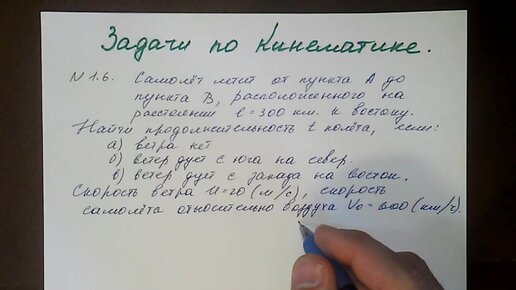 Задачи по Кинематике.
N 1.6. Самолёт летит от пункта А до
пункта В, расположенного на
расстоянии ℓ=300 км. к востоку.
Найти продолжительность t полёта, если:
а) ветра нет
б) ветер дует с юга на север.
в) ветер дует с запада на восток.
Скорость ветра U=20 (м/с), скорость
самолёта относительно воздуха V₀=600 (км/ч).